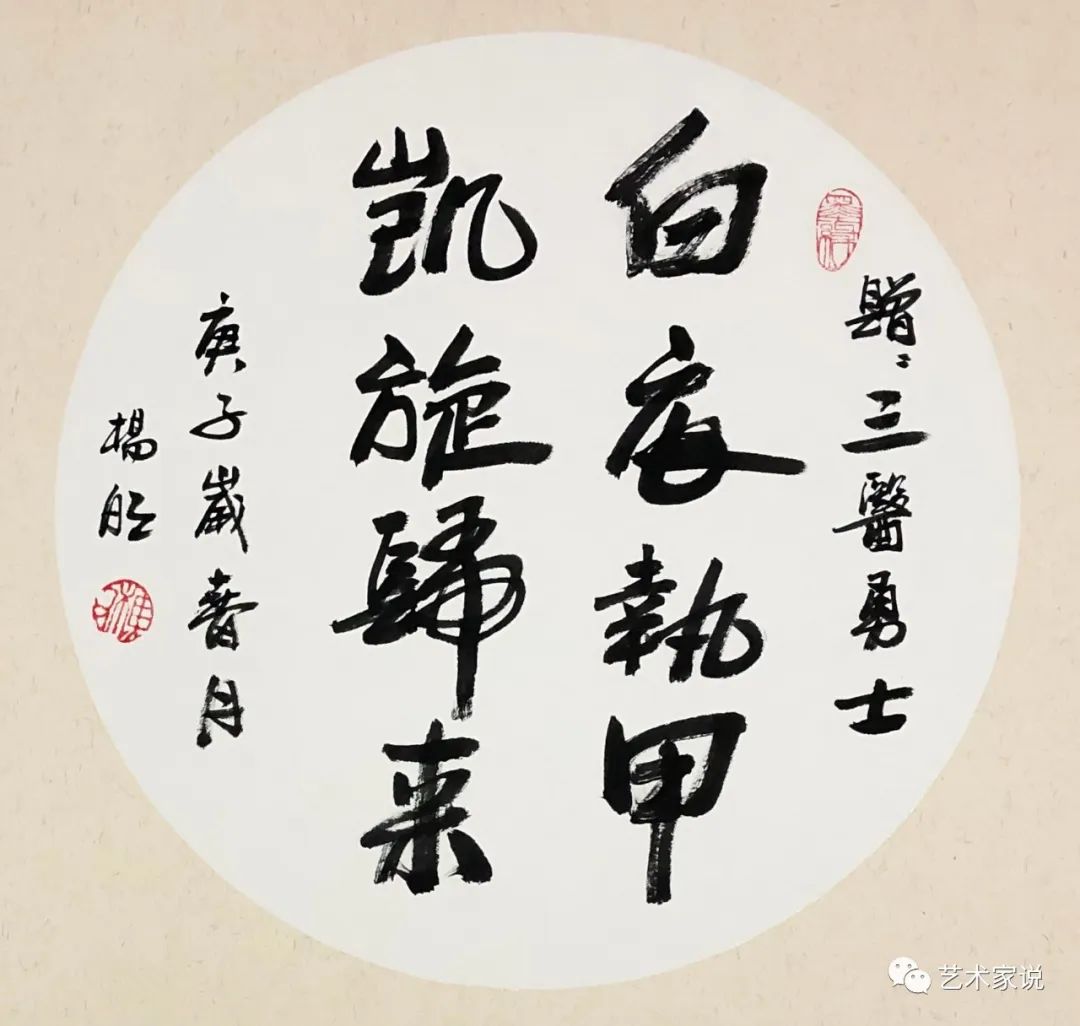 贈〻三醫勇士
白衣執甲
凱旋歸来
庚子歲春月
楊
艺术家说